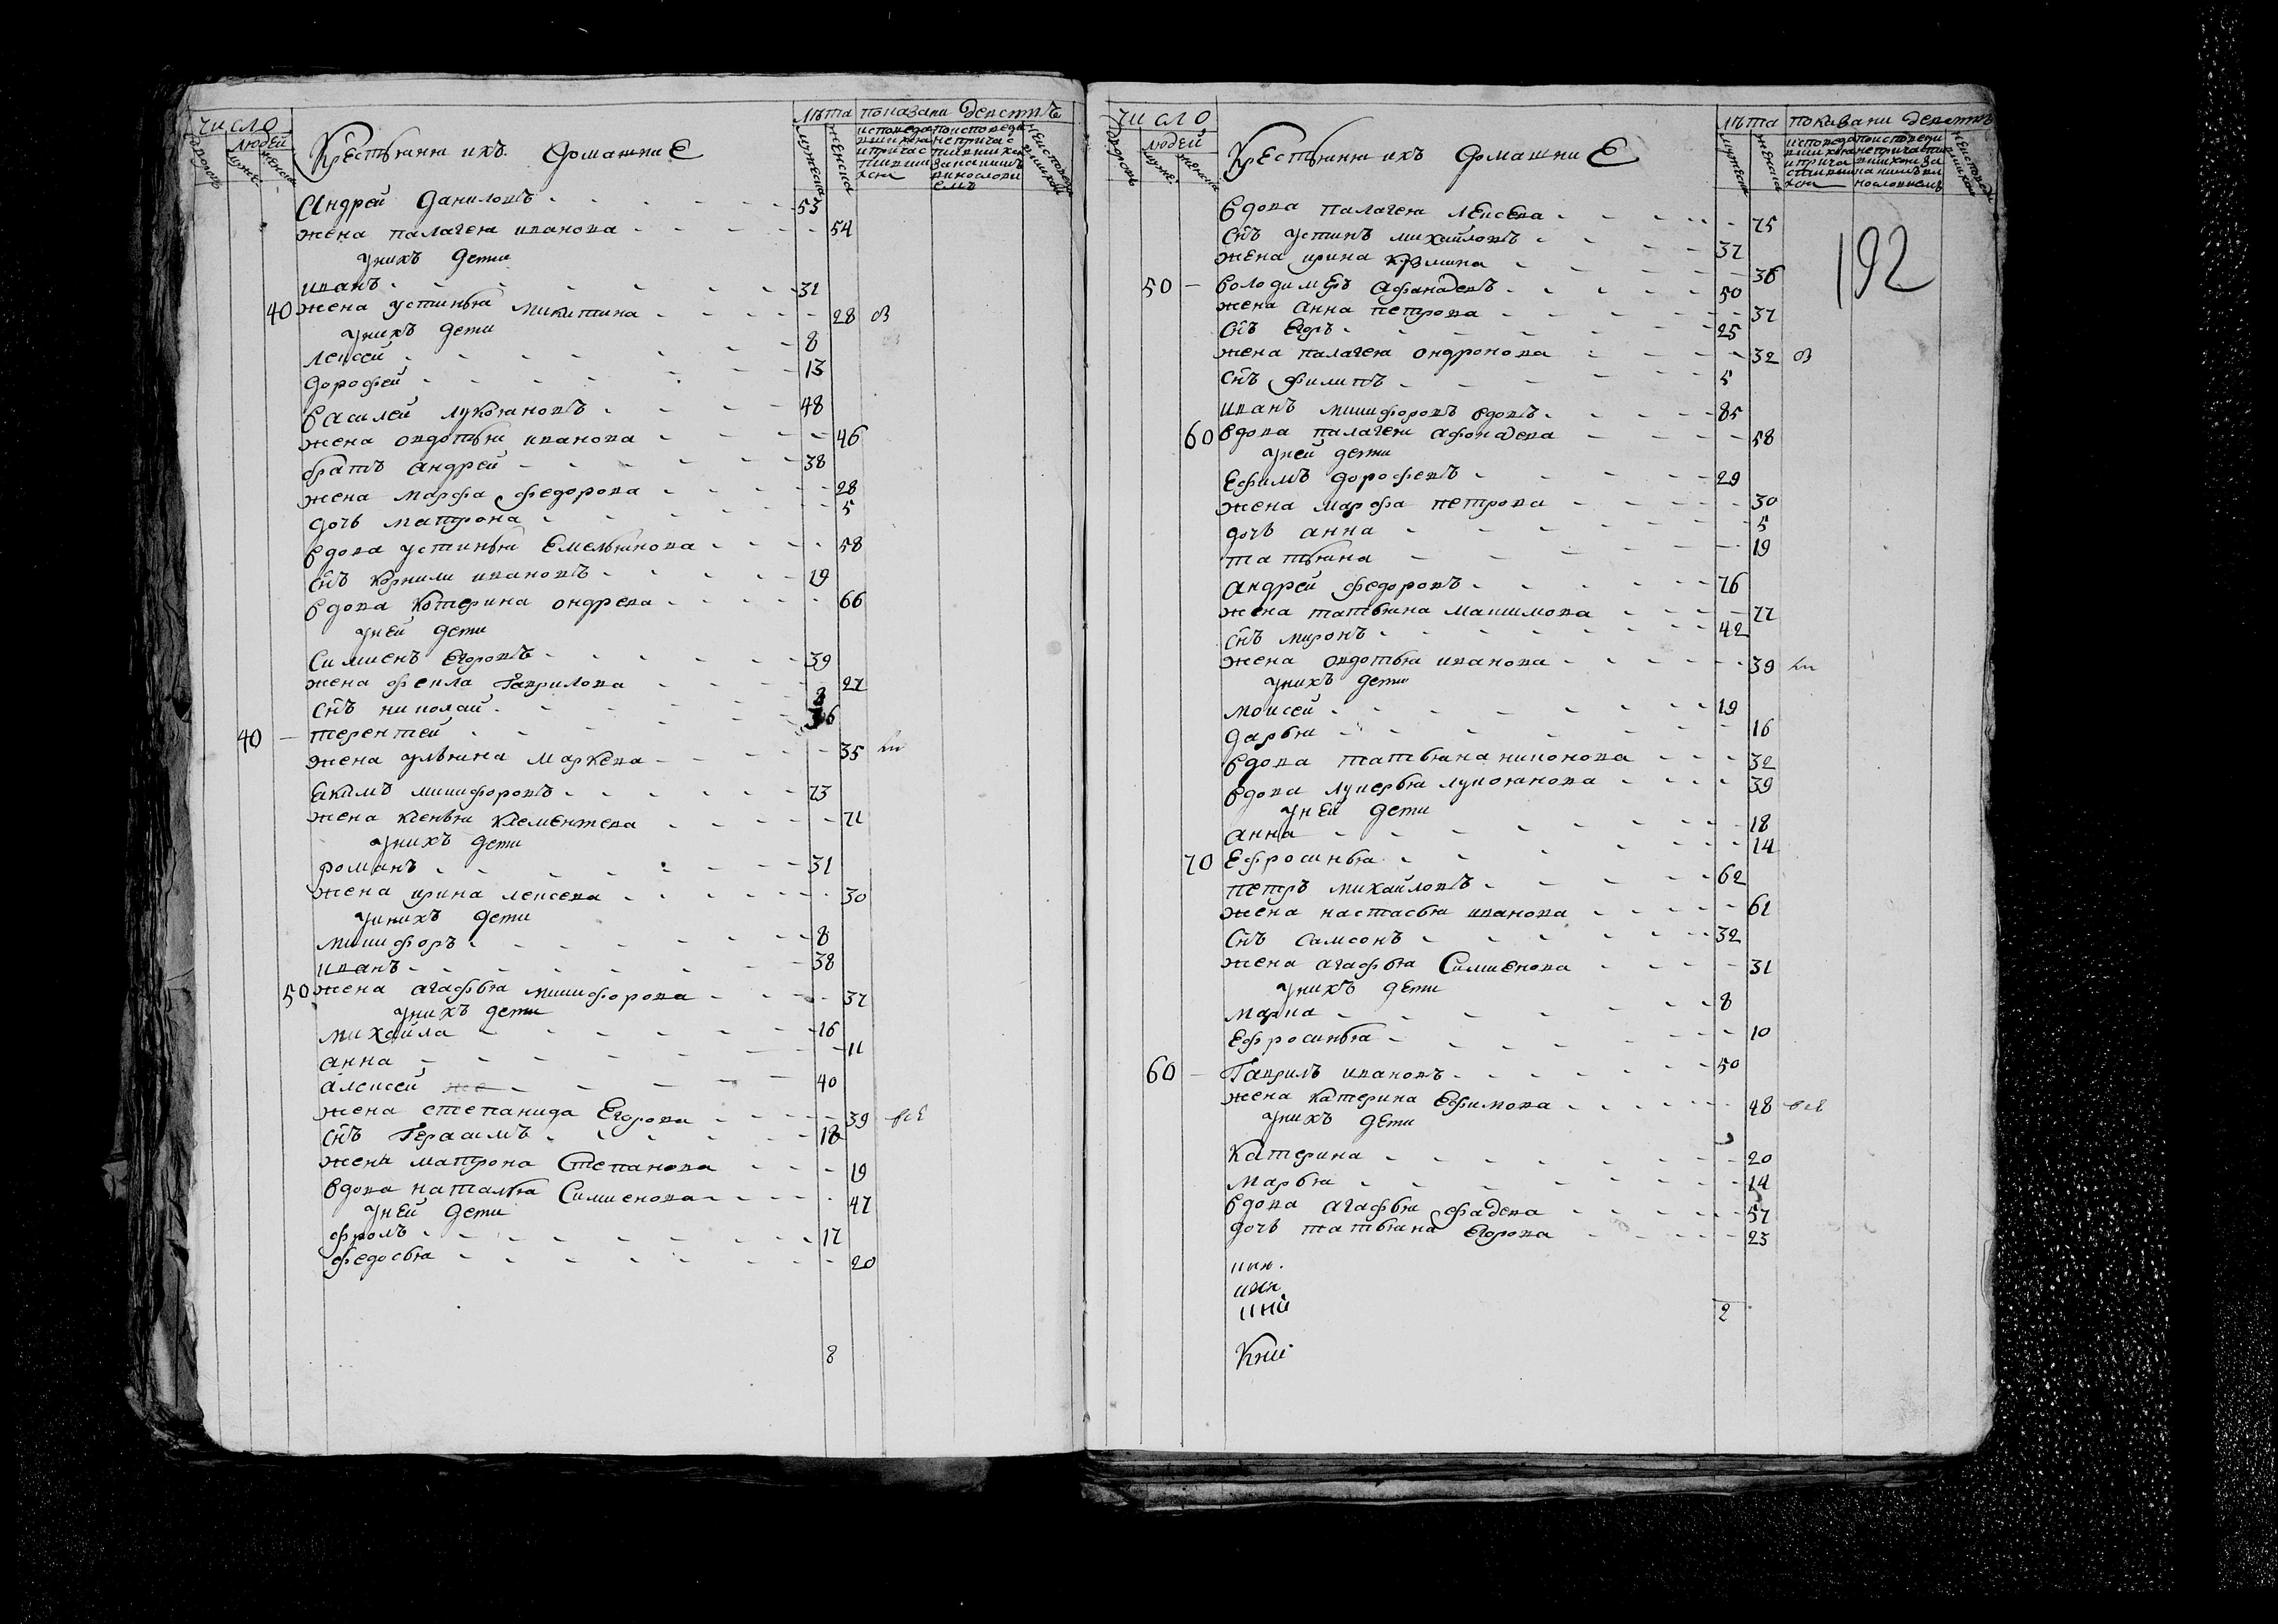 число
людей
Крестьяня ихъ домашние
лѣта показани действъ
мужеска
женска
Андрей Даниловъ 53
жена палагея иванова 54
униxъ дети
иванъ 31
40 жена устинья микитина 28
унихъ дети
лексей 8
дорофей 13
василей лукояновъ 48
жена овдотья иванова 46
братъ андрей 38
жена марфа федорова 28
дочь матрона 5
вдова устинья Емельянова 58
снъ корнили ивановъ 19
вдова Котерина ондрева 66
уней дети
Симиенъ Егоровъ 39
жена фекла Гаврилова 27
снъ николай
40 терентей 36
жена ульяна маркева 35
Екимъ микифоровъ 73
жена ксенья клементева 71
унихъ дети
романъ 31
жена ирина лексева 30
унихъ дети
микифоръ 8
иванъ 38
50 жена агафья микифорова 37
унихъ дети
михайла 16
анна 11
алексей 40
жена степанида Егорова 39
снъ Герасимъ 18
жена матрона Степанова 19
вдова наталья Симиенова 47
уней дети
фролъ 17
федосья 20
8
число
людей
Крестьяня ихъ домашние
лѣта показани действъ
мужеска
женска
192
вдова палагея лексева 75
снъ устинъ михайловъ 37
жена ирина кузмина 36
50 володимеръ афанасевъ 50
жена анна петрова 37
снъ Егоръ 25
жена палагея ондронова 32
снъ филипъ 5
иванъ микифоровъ вдовъ 85
60 вдова палагея афонасева 58
уней дети
Ефимъ дорофевъ 29
жена марфа петрова 30
дочь анна 5
татьяна 19
андрей федоровъ 76
жена татьяна максимова 77
снъ миронъ 42
жена овдотья иванова 39
унихъ дети
моисей 19
дарья 16
вдова татьяна никонова 32
вдова лукерья лукоянова 39
уней дети
анна 18
70 Ефросинья 14
петръ михайловъ 62
жена настасья иванова 61
снъ самсонъ 32
жена агафья Симиенова 31
унихъ дети
марка 8
Ефросинья 10
60 Гаврилъ ивановъ 50
жена катерина Ефимова 48
унихъ дети
Катерина 20
марья 14
вдова агафья фадева 57
дочь татьяна Егорова 23
2